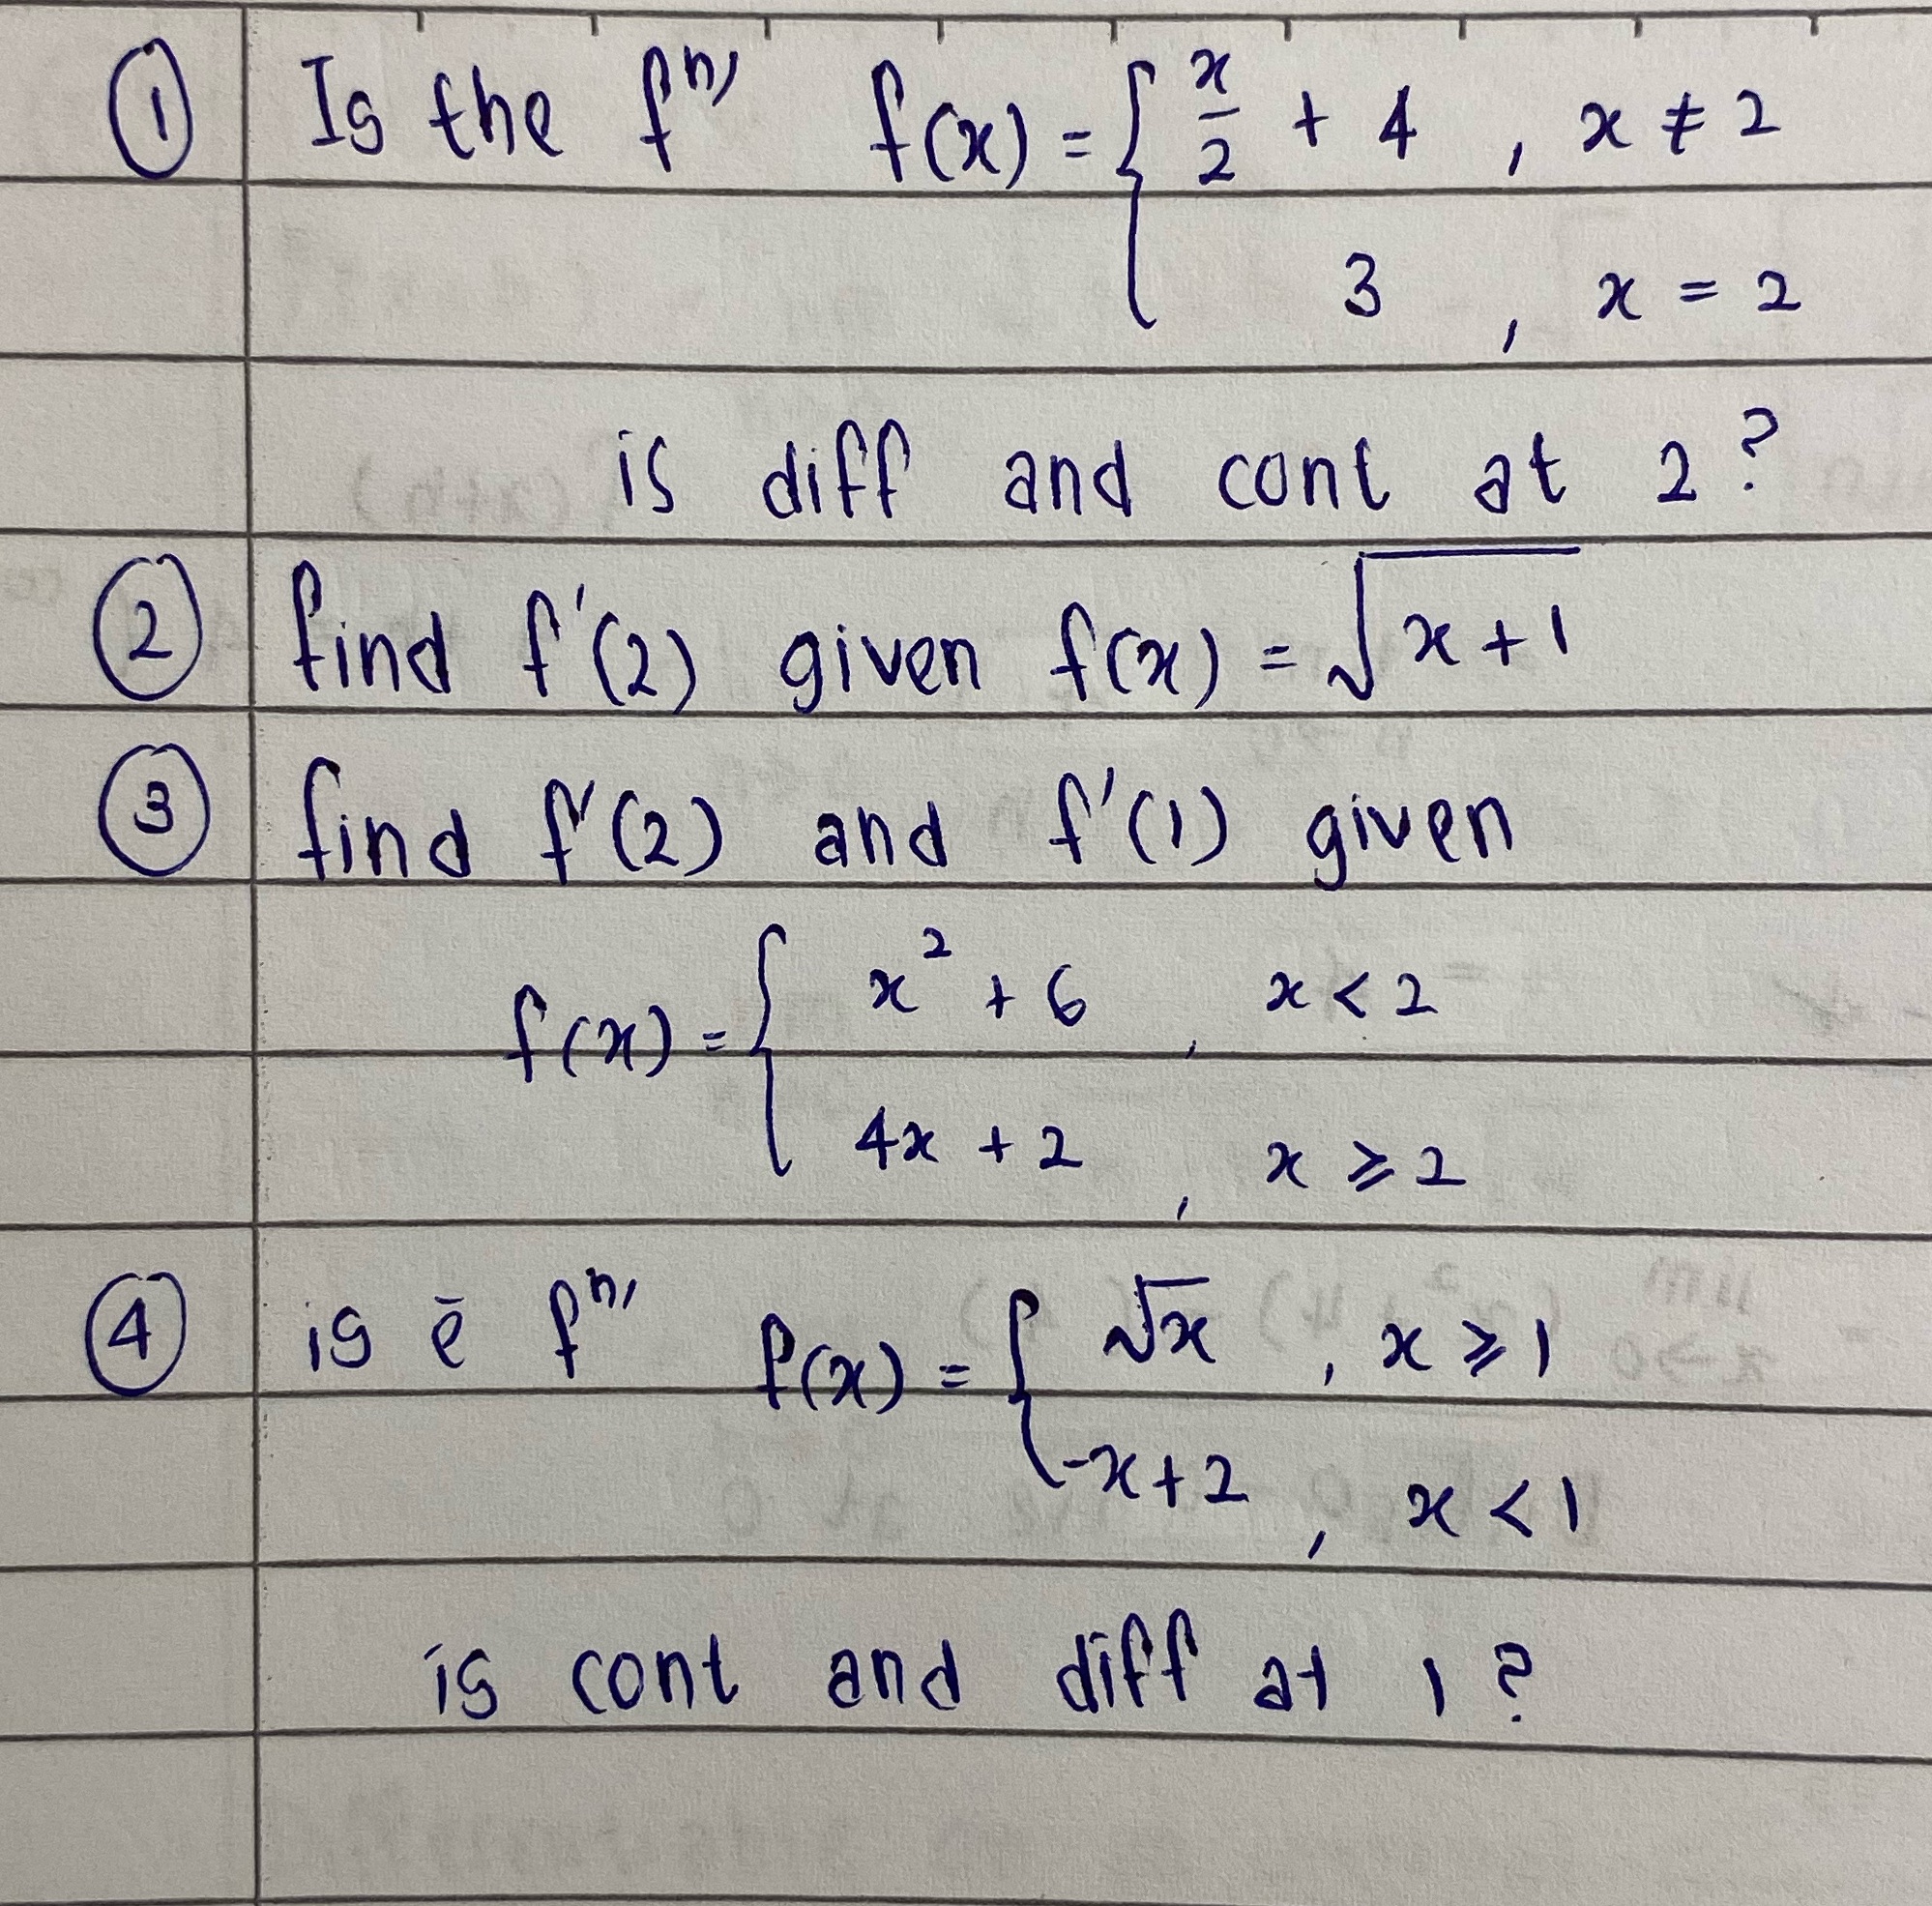 ① Is the fⁿ⁄ f(x) = { x/2 + 4 , x ≠ 2
3 , x = 2
is diff and cont at 2 ?
② find f'(2) given f(x) = √(x+1)
③ find f'(2) and f'(1) given
f(x) = { x² + 6 , x < 2
4x + 2 , x ⩾ 2
④ is ē fⁿ⁄ f(x) = { √x , x ⩾ 1
-x+2 , x < 1
is cont and diff at 1 ?